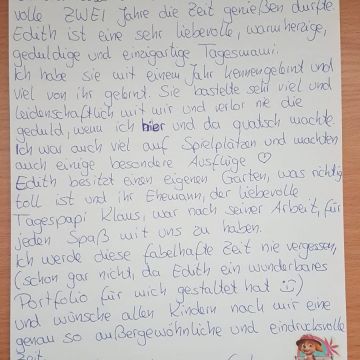 volle ZWEI Jahre die Zeit genießen durfte
Edith ist eine sehr liebevolle, warmherzige,
geduldige und einzigartige Tagesmami.
Ich habe sie mit einem Jahr kennengelernt und
viel von ihr gelernt. Sie bastelte sehr viel und
leidenschaftlich mit mir und verlor nie die
geduld, wenn ich hier und da quatsch machte.
Ich war auch viel auf Spielplätzen und machten
auch einige besondere Ausflüge ♡
Edith besitzt einen eigenen Garten, was richtig
toll ist und ihr Ehemann, der liebevolle
Tagespapi Klaus, war nach seiner Arbeit, für
jeden Spaß mit uns zu haben.
Ich werde diese fabelhafte Zeit nie vergessen,
(schon gar nicht, da Edith ein wunderbares
Portfolio für mich gestaltet hat :))
und wünsche allen Kindern nach mir eine
genau so außergewöhnliche und eindrucksvolle
Zeit